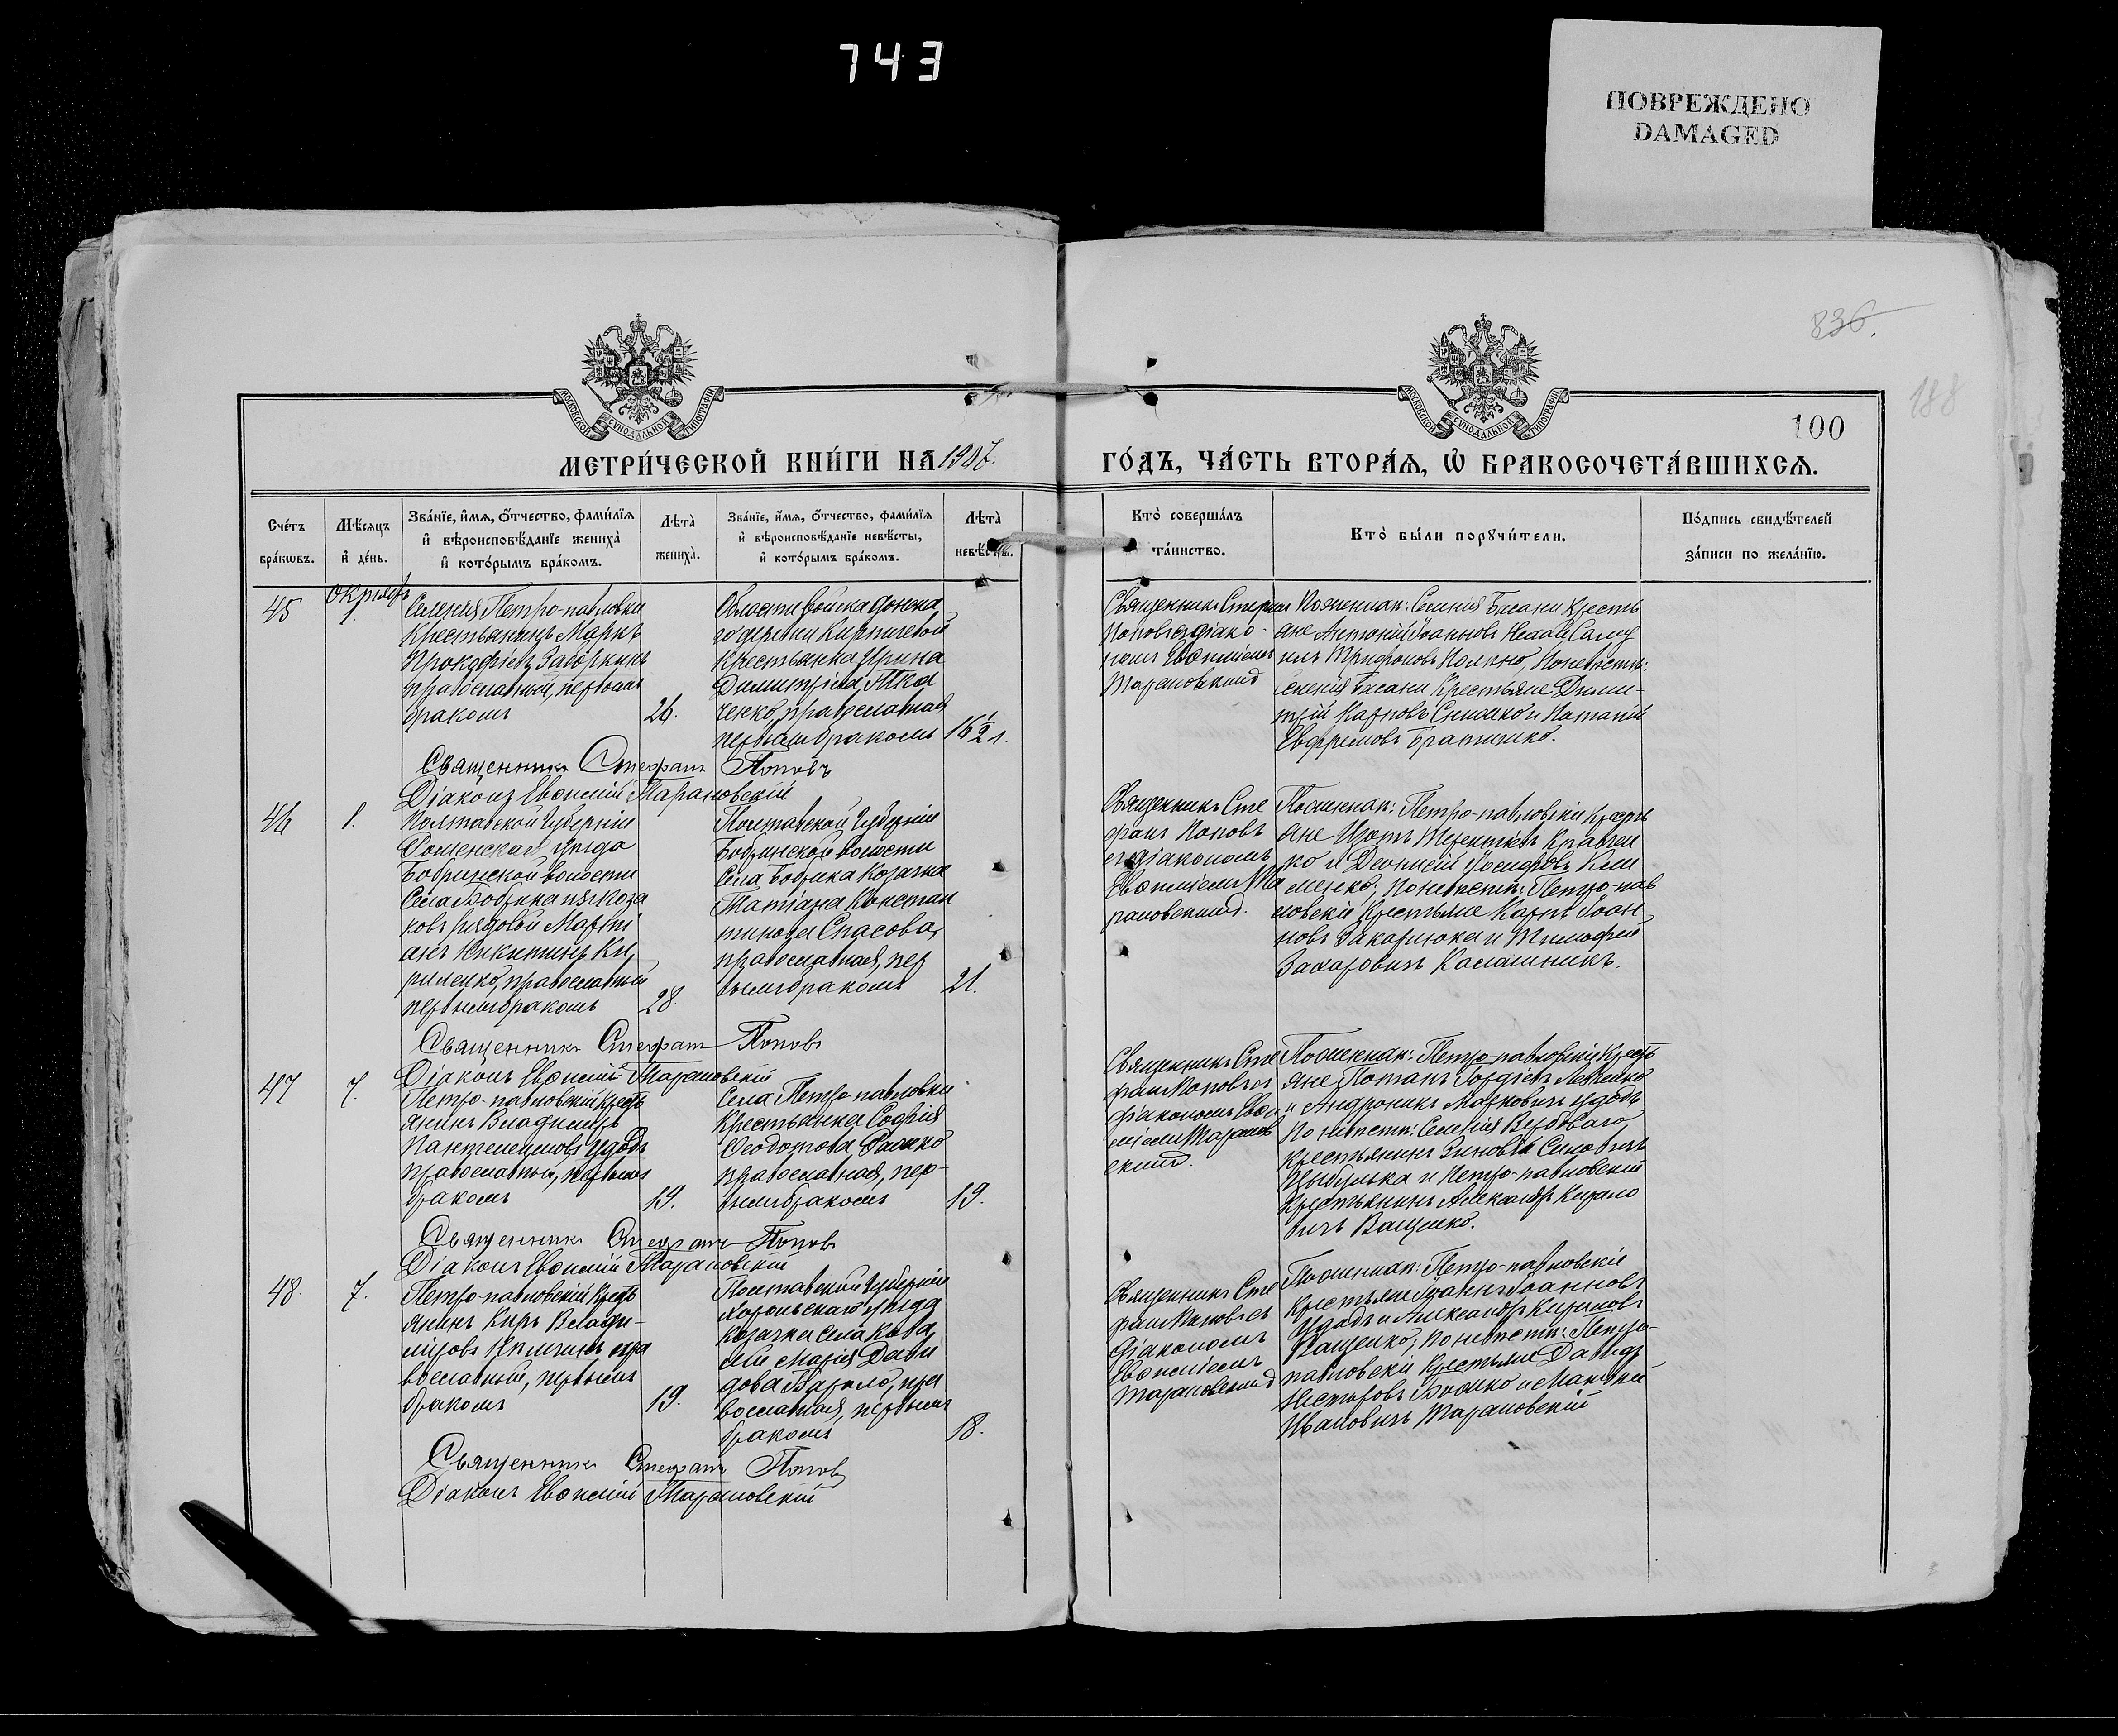 743
ПОВРЕЖДЕНО
DAMAGED
836.
188
100
МОСКОВСКОЙ СѴНОДАЛЬНОЙ ТИПОГРАФІИ
МОСКОВСКОЙ СѴНОДАЛЬНОЙ ТИПОГРАФІИ
МЕТРИ́ЧЕСКОЙ КНИ́ГИ НА 1907.
ГО́ДЪ, ЧА́СТЬ ВТОРА́Ѧ, Ѡ҆ БРАКОСОЧЕТА́ВШИХСѦ.
Сче́тъ бра́кѡвъ.
Мѣ́сяцъ и҆ де́нь.
Зва́нїе, и҆́мѧ, ѻ҆́тчество, фами́лїѧ и҆ вѣроисповѣ́данїе жениха̀ и҆ кото́рымъ бра́комъ.
Лѣ́та̀ жениха̀.
Зва́нїе, и҆́мѧ, ѻ҆́тчество, фами́лїѧ и҆ вѣроисповѣ́данїе невѣ́сты, и҆ кото́рымъ бра́комъ.
Лѣ́та̀ невѣ́сты.
Кто̀ соверша́лъ та́инство.
Кто̀ бы́ли порꙋчи́тели.
По́дпись свидѣ́телей за́писи по жела́нїю.
45
октября
1.
Селенія Петро-павловки
крестьянинъ Маркъ
Прокофіевъ Заборкинъ
православный, первымъ
бракомъ
26.
Области Войска Донска
го деревни Кирпичевой
крестьянка Ирина
Димитріева Тка
ченко, православная
первымъ бракомъ
16½ л.
Священникъ Стефан
Поповъ съ діако-
номъ Евѳиміемъ
Тарановскимъ
По женихѣ: Селенія Басани кресть
яне Антоній Іоанновъ
илъ Трифоновъ по невѣстѣ:
селенія Басани крестьяне Дими-
трій Карповъ и Потапій
Евфремовъ
Священникъ Стефанъ Поповъ
Діаконъ Евѳимій Тарановскій
46
1.
Полтавской губерніи
Роменскаго уѣзда
Бобринской волости
Села Бобрика изъ коза
ковъ рядовой Марти
анъ Никитинъ Ки
риленко, православный
первымъ бракомъ
28.
Полтавской губерніи
Бобринской волости
Села Бобрика козачка
Татіана Констан
тинова Спасова,
православная, пер
вымъ бракомъ
21.
Священникъ Сте
фанъ Поповъ
съ діакономъ
Евѳиміемъ Та
рановскимъ.
По женихѣ: Петро-павловскіе кресть
яне Изотъ Терентіевъ Кравчен
ко и Діонисій Іосифовъ Кли
менко; по невѣстѣ: Петро-пав
ловскіе крестьяне Карпъ Іоан
новъ Закарлюка и Тимофей
Захаровичъ Калашникъ.
Священникъ Стефанъ Поповъ
Діаконъ Евѳимій Тарановскій
47
7.
Петро-павловскій кресть
янинъ Владиміръ
Пантелеимоновъ Удодъ
православный, первымъ
бракомъ
19.
Села Петро-павловки
крестьянка Софія
Ѳеодотова
православная, пер-
вымъ бракомъ
19.
Священникъ Сте
фанъ Поповъ съ
діакономъ Евѳи
міемъ Таранов
скимъ.
По женихѣ: Петро-павловскіе кресть
яне Потапъ Гордіевъ
и Андроникъ Марковичъ Удодъ
По невѣстѣ: Селенія Вербоваго
крестьянинъ Зиновій
Цыбулька и Петро-павловскій
крестьянинъ Александръ Кирило
вичъ Ващенко.
Священникъ Стефанъ Поповъ
Діаконъ Евѳимій Тарановскій
48.
7.
Петро-павловскій кресть
янинъ Киръ Влади-
міровъ пра
вославный, первымъ
бракомъ
19.
Полтавской губерніи
Хорольскаго уѣзда
козачка села
Марія Дави
дова пра
вославная, первымъ
бракомъ
18.
Священникъ Сте
фанъ Поповъ съ
діакономъ
Евѳиміемъ
Тарановскимъ
По женихѣ: Петро-павловскіе
крестьяне Іоаннъ Іоанновъ
Удодъ и Александръ Кириловъ
Ващенко; по невѣстѣ: Петро-
павловскіе крестьяне Давидъ
Несторовъ и
Ивановичъ Тарановскій
Священникъ Стефанъ Поповъ
Діаконъ Евѳимій Тарановскій